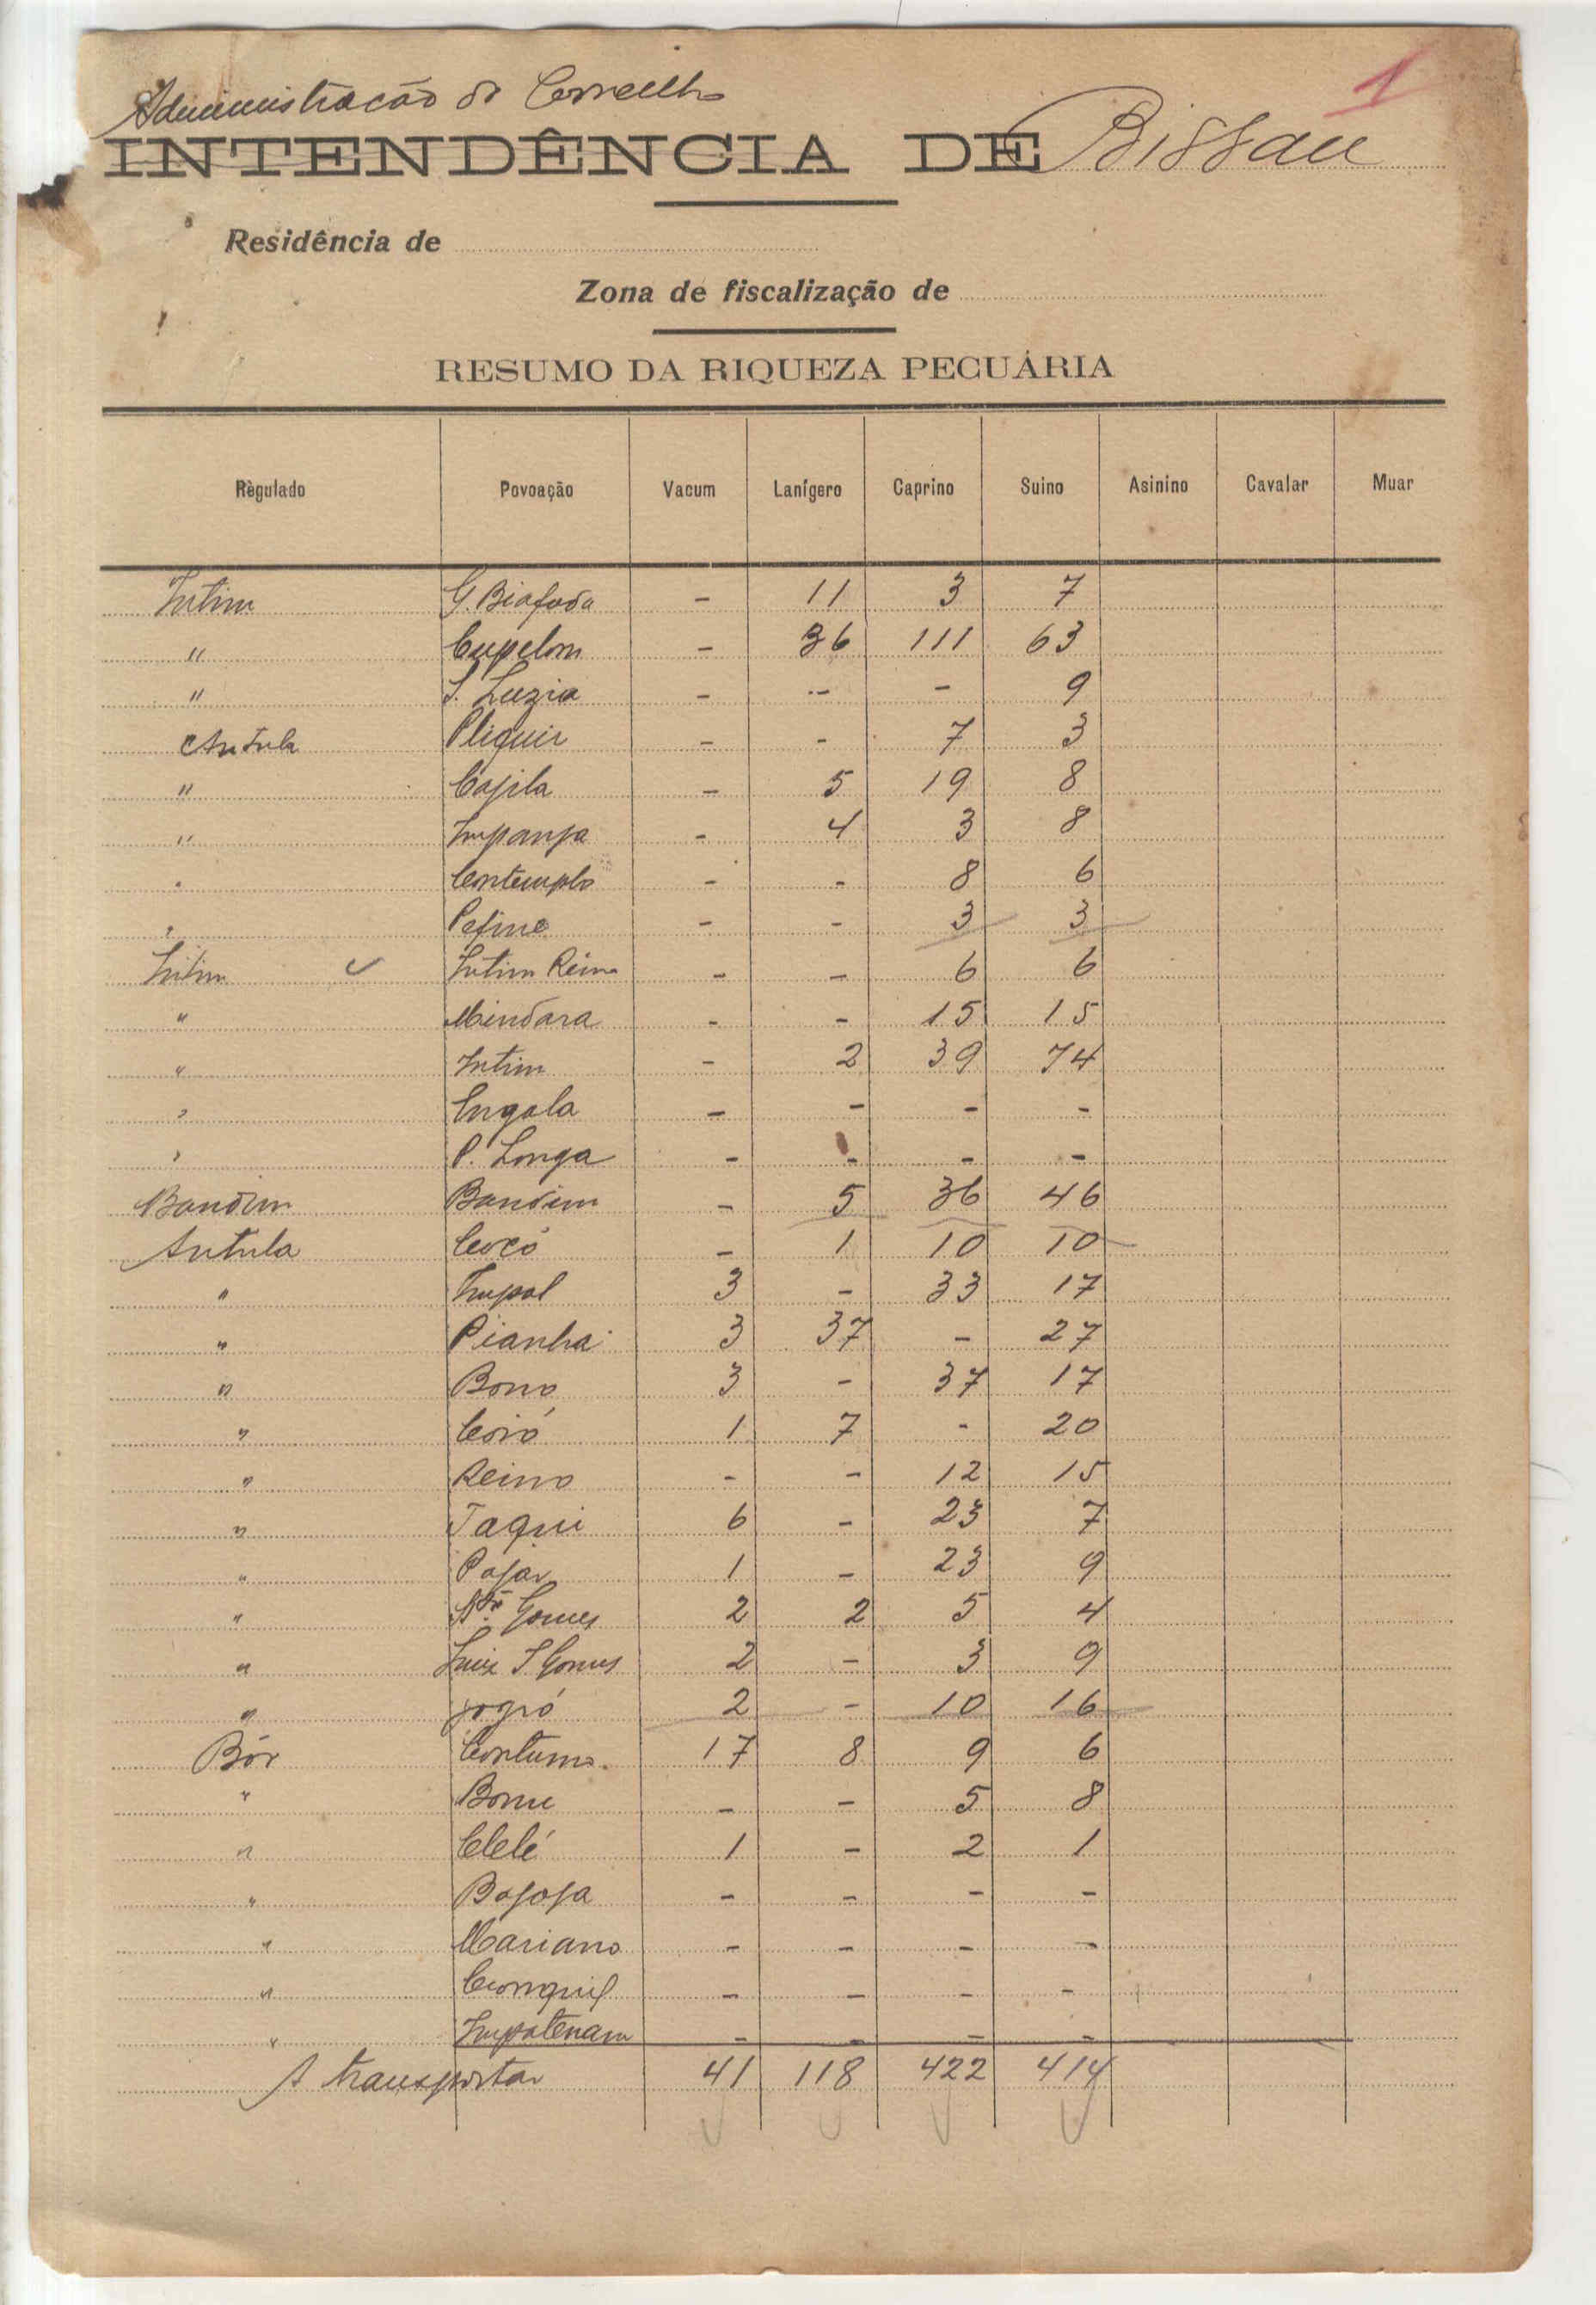 1
Administração do Concelho
INTENDÊNCIA DE Bissau
Residência de
Zona de fiscalização de
RESUMO DA RIQUEZA PECUÁRIA
Règulado Povoação Vacum Lanígero Caprino Suino Asinino Cavalar Muar
Intim G. Biafada - 11 3 7
" Cupelom - 36 111 63
" S. Luzia - - - 9
Antula Pliquir - - 7 3
" Cajila - 5 19 8
" Impanja - 4 3 8
" Contemplo - - 8 6
" Pefine - - 3 3
Intim Intim Reino - - 6 6
" Mindara - - 15 15
" Intim - 2 39 74
" Engala - - - -
" P. Longa - - - -
Bandim Bandim - 5 36 46
Antula Cocó - 1 10 10
" Impal 3 - 33 17
" Pianha 3 37 - 27
" Bono 3 - 37 17
" Coió 1 7 - 20
" Reino - - 12 15
" Jaqui 6 - 23 7
" Pajar 1 - 23 9
" Gomes 2 2 5 4
" Luiz S Gomes 2 - 3 9
" 2 - 10 16
Bôr Contumo 17 8 9 6
" Borne - - 5 8
" Clelé 1 - 2 1
" Bajoja - - - -
" Mariano - - - -
" - - - -
" Impatenam - - - -
A transportar 41 118 422 414